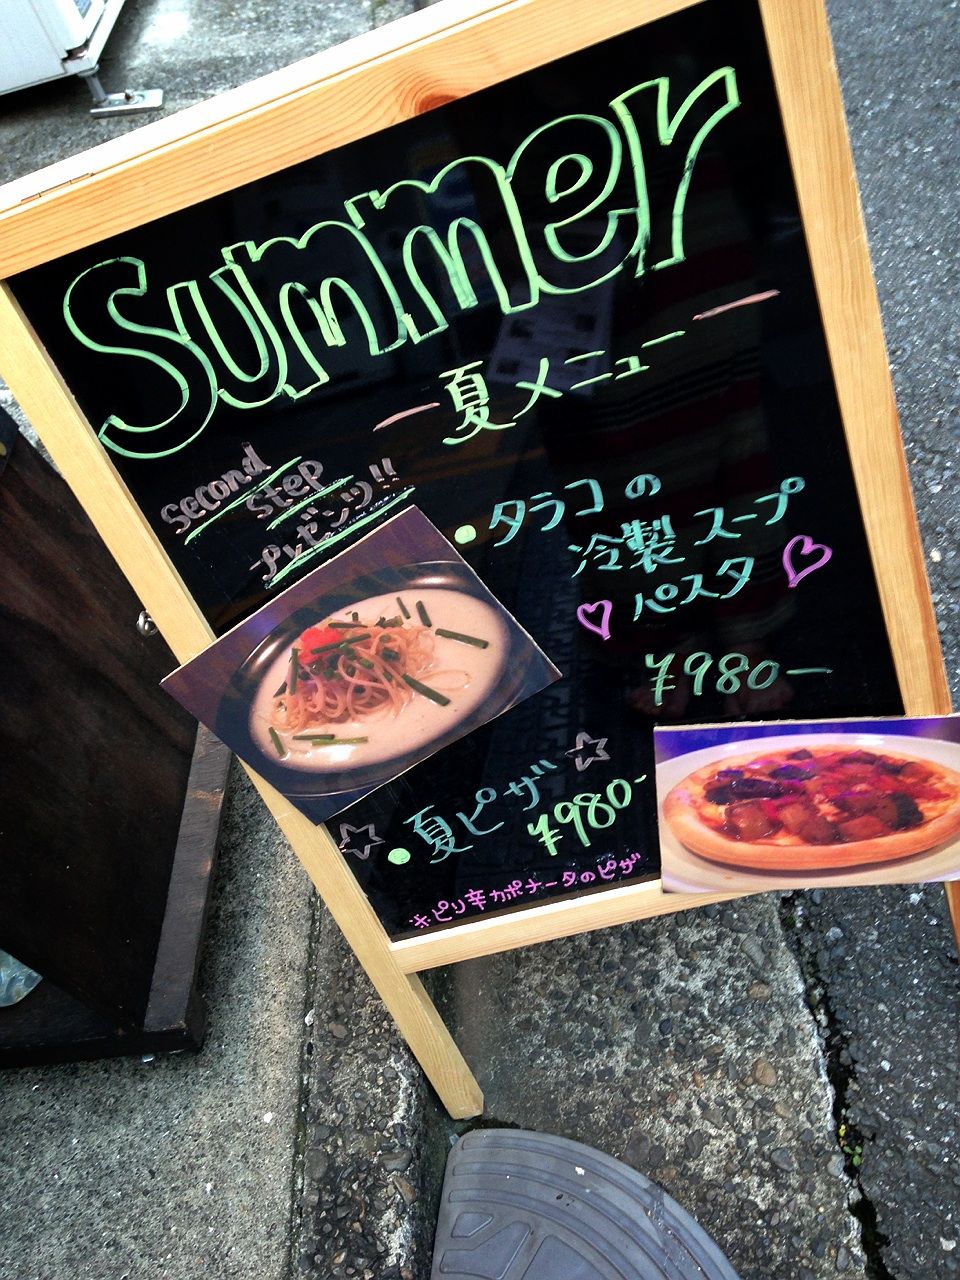 Summer
夏メニュー
second
step
プレゼンツ!!
・タラコの
冷製スープ
♡パスタ♡
¥980-
☆・夏ピザ☆
¥980-
※ピリ辛カポナータのピザ